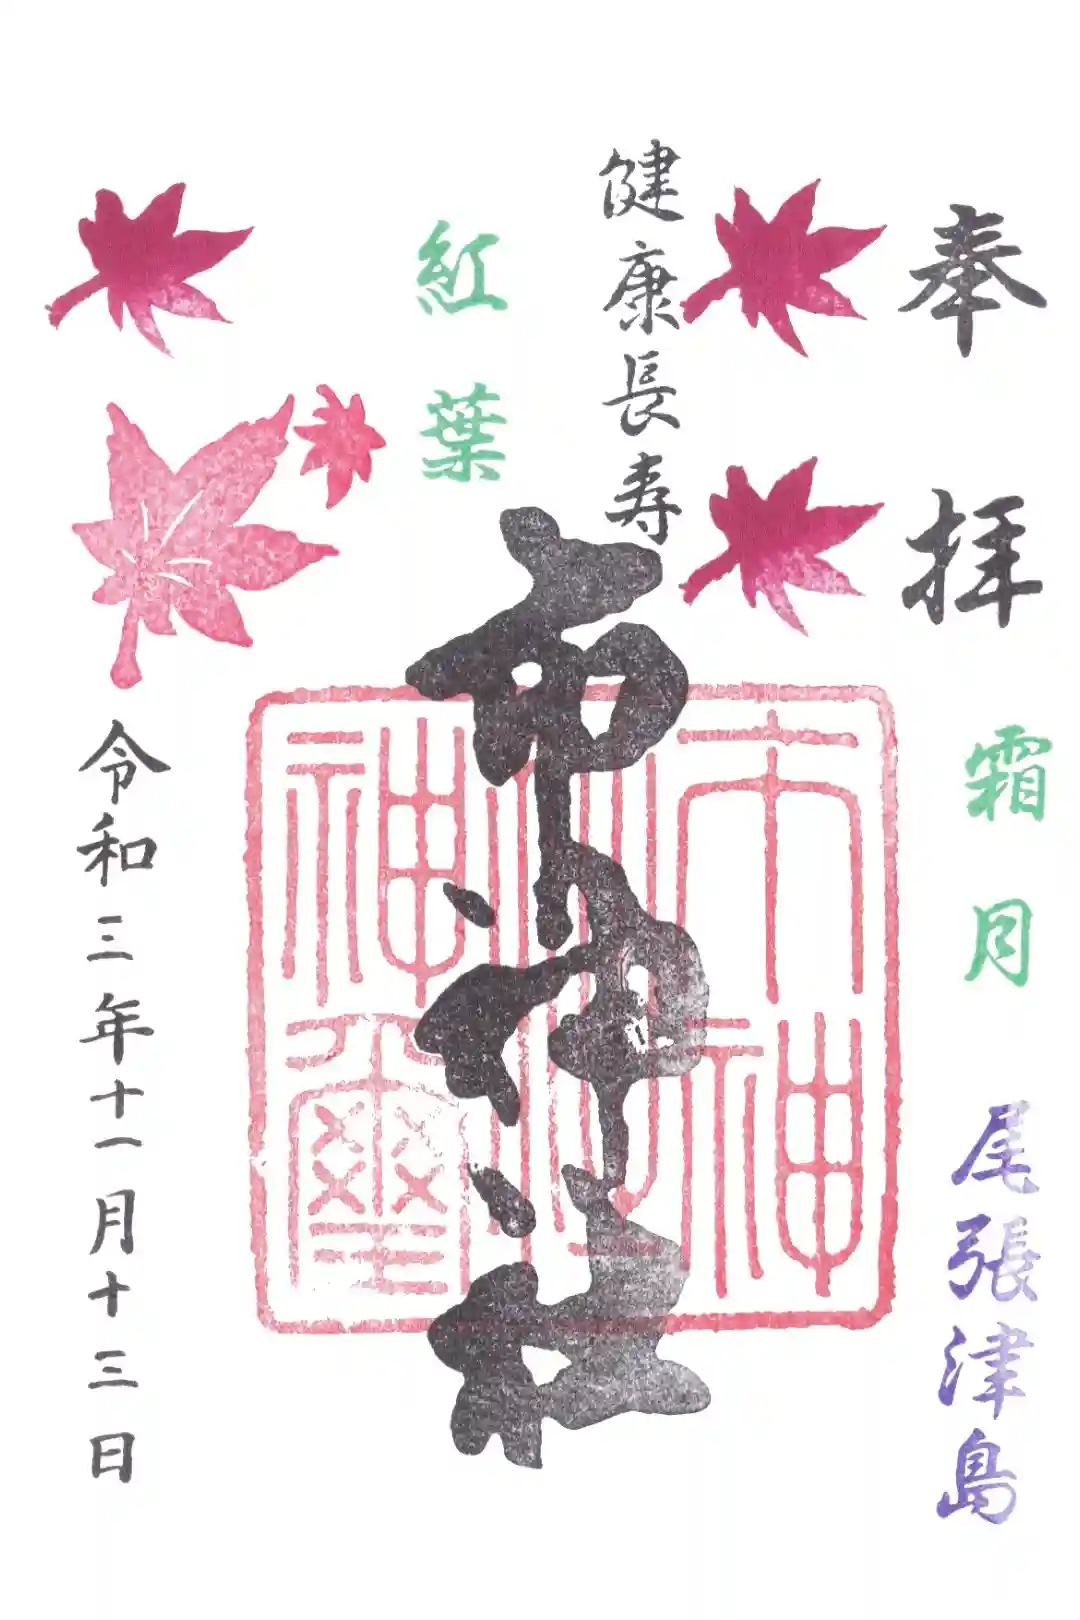 奉拝
霜月
尾張津島
健康長寿
市神社
大市比売神社
紅葉
令和三年十一月十三日